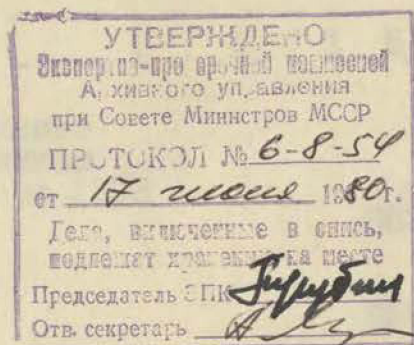 УТВЕРЖДЕНО
Экспертно-проверочной комиссией
Архивного управления
при Совете Министров МССР
ПРОТОКОЛ № 6-8-54
от 17 июня 1980г.
Дела, включенные в опись,
подлежат хранению на месте
Председатель ЭПК
Отв. секретарь